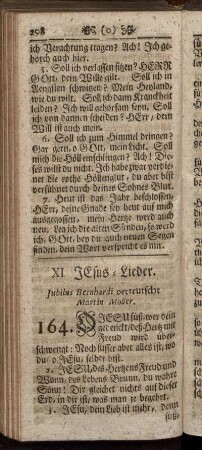 208 (o)
ich Verachtung tragen? Ach! Ich ge-
horch auch hier.
5. Soll ich verlassen sitzen? HERR
GOtt, dein Wille gilt. Soll ich in
Aengsten schwitzen? Mein Heyland,
wie du wilt. Soll ich dann Kranckheit
leiden? Ich will gehorsam seyn. Soll
ich von dannen scheiden? HErr, dein
Will ist auch mein.
6. Soll ich zum Himmel dringen?
Gar gern, o GOtt, mein Licht. Soll
mich die Höll verschlingen? Ach! Die-
ses wilst du nicht. Ich habe zwar verdie-
net die Höllenglut, du aber bist
versühnet durch deines Sohnes Blut.
7. Heut ist das Jahr beschlossen,
HErr, deine Gnade sey heut auf mich
ausgegossen, mein Hertze werd auch
neu. Laß ich die alten Sünden, so werd
ich, GOtt, bey dir auch neuen Segen
finden, dein Wort verspricht es mir.
XI JEsus-Lieder.
Jubilus Bernhardi verteutscht
Martin Moller.
164. O JESU süß, wer dein
gedenckt, deß Hertz mit
Freud wird über-
schwengt: Noch süsser aber alles ist, wo
du, o JEsu, selber bist.
2. JESU, des Hertzens Freud und
Wonn, des Lebens Brunn, du wahre
Sonn! Dir gleichet nichts auf dieser
Erd, in dir ist, was man je begehrt.
3. JEsu, dein Lieb ist mehr, denn
süß,